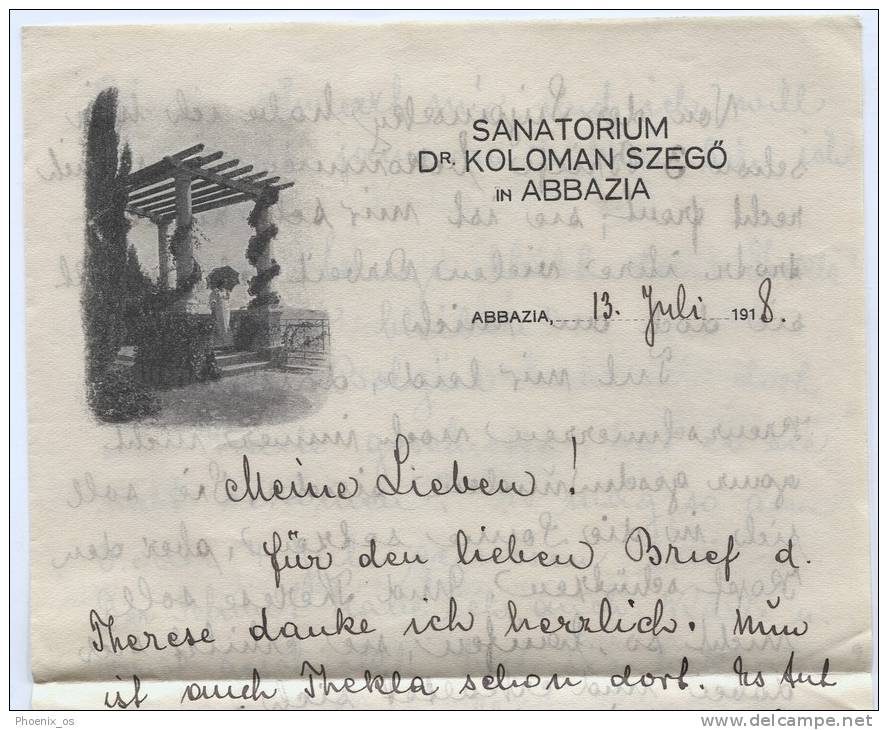 SANATORIUM
DR. KOLOMAN SZEGŐ
IN ABBAZIA
ABBAZIA, 13. Juli 1918.
Meine Lieben!
Für den lieben Brief d.
Therese danke ich herzlich. Nun
ist auch Thekla schon dort. Es tut
Phoenix_os
www.delcampe.net